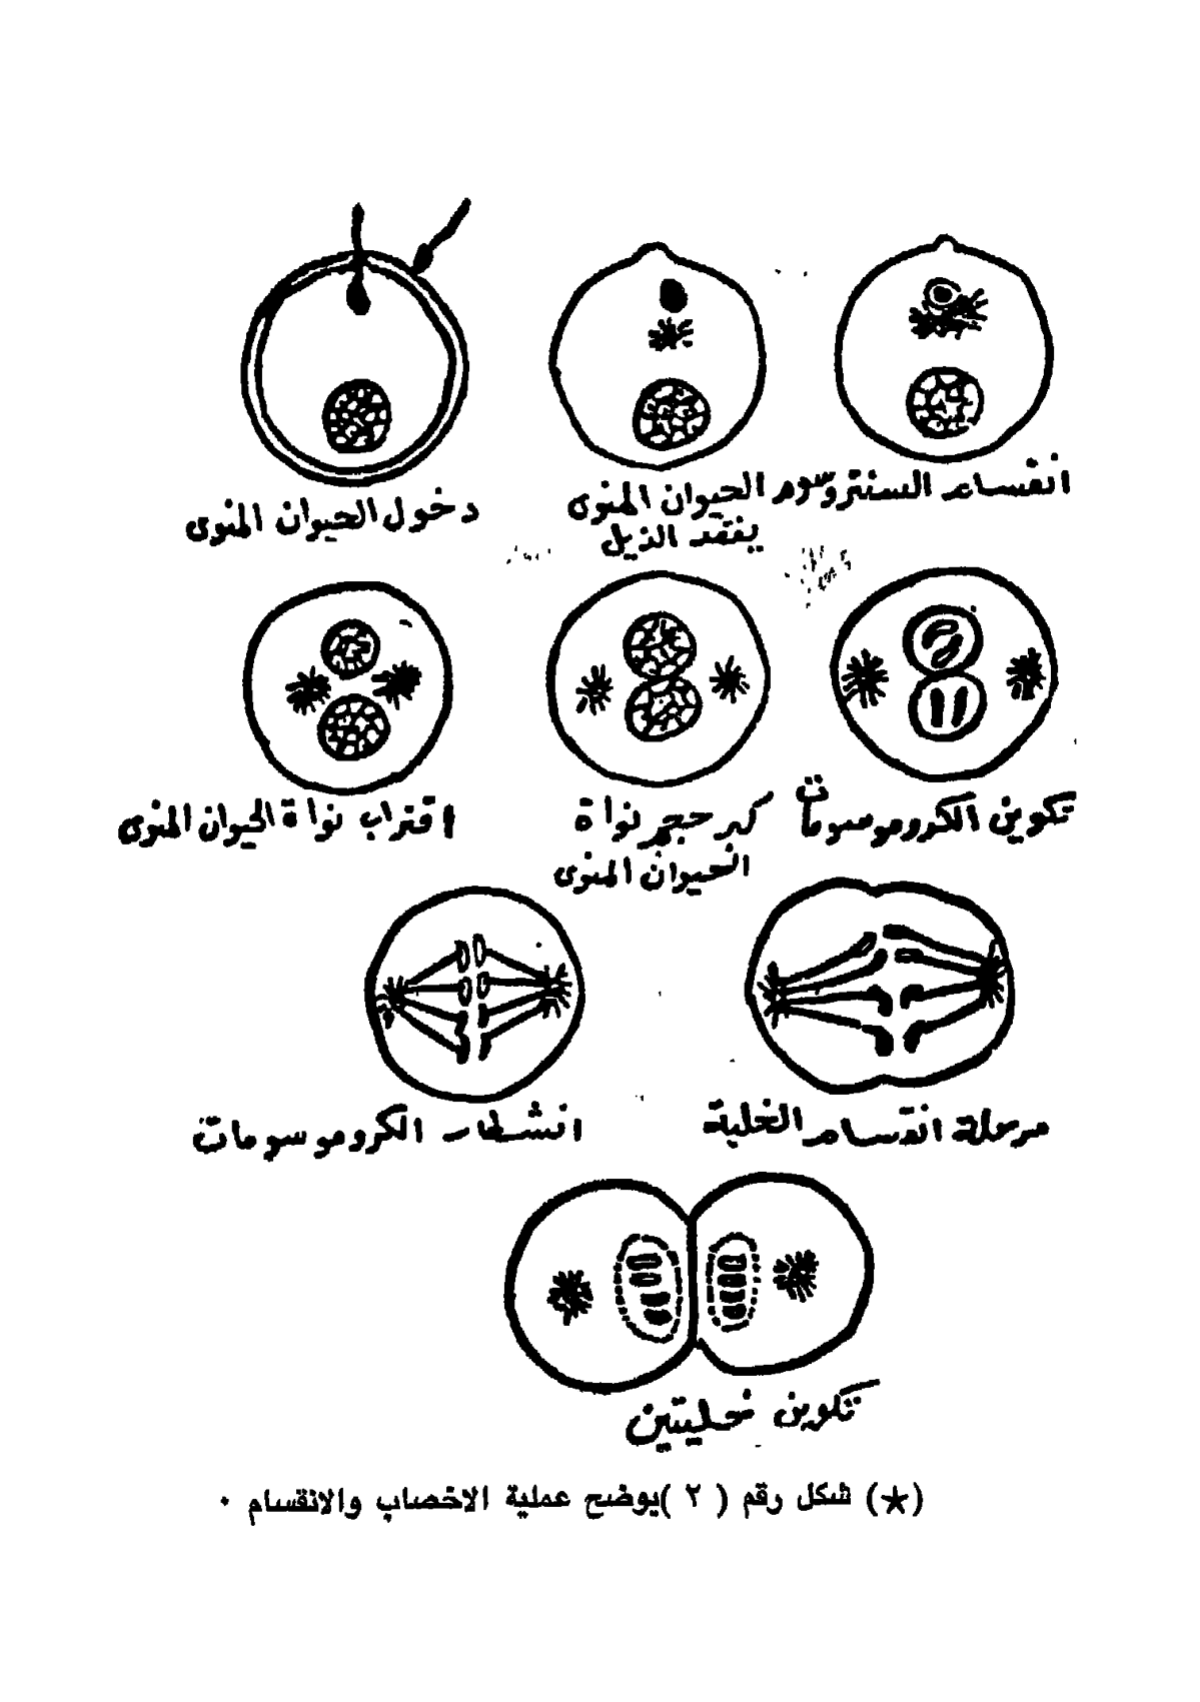 انقسام السنتروسوم
الحيوان المنوى
يفقد الذيل
دخول الحيوان المنوى
تكوين الكروموسومات
كبر حجم نواة
الحيوان المنوى
اقتراب نواة الحيوان المنوى
مرحلة انقسام الخلية
انشطار الكروموسومات
تكوين خليتين
(★) شكل رقم ( ٢ ) يوضح عملية الاخصاب والانقسام ٠